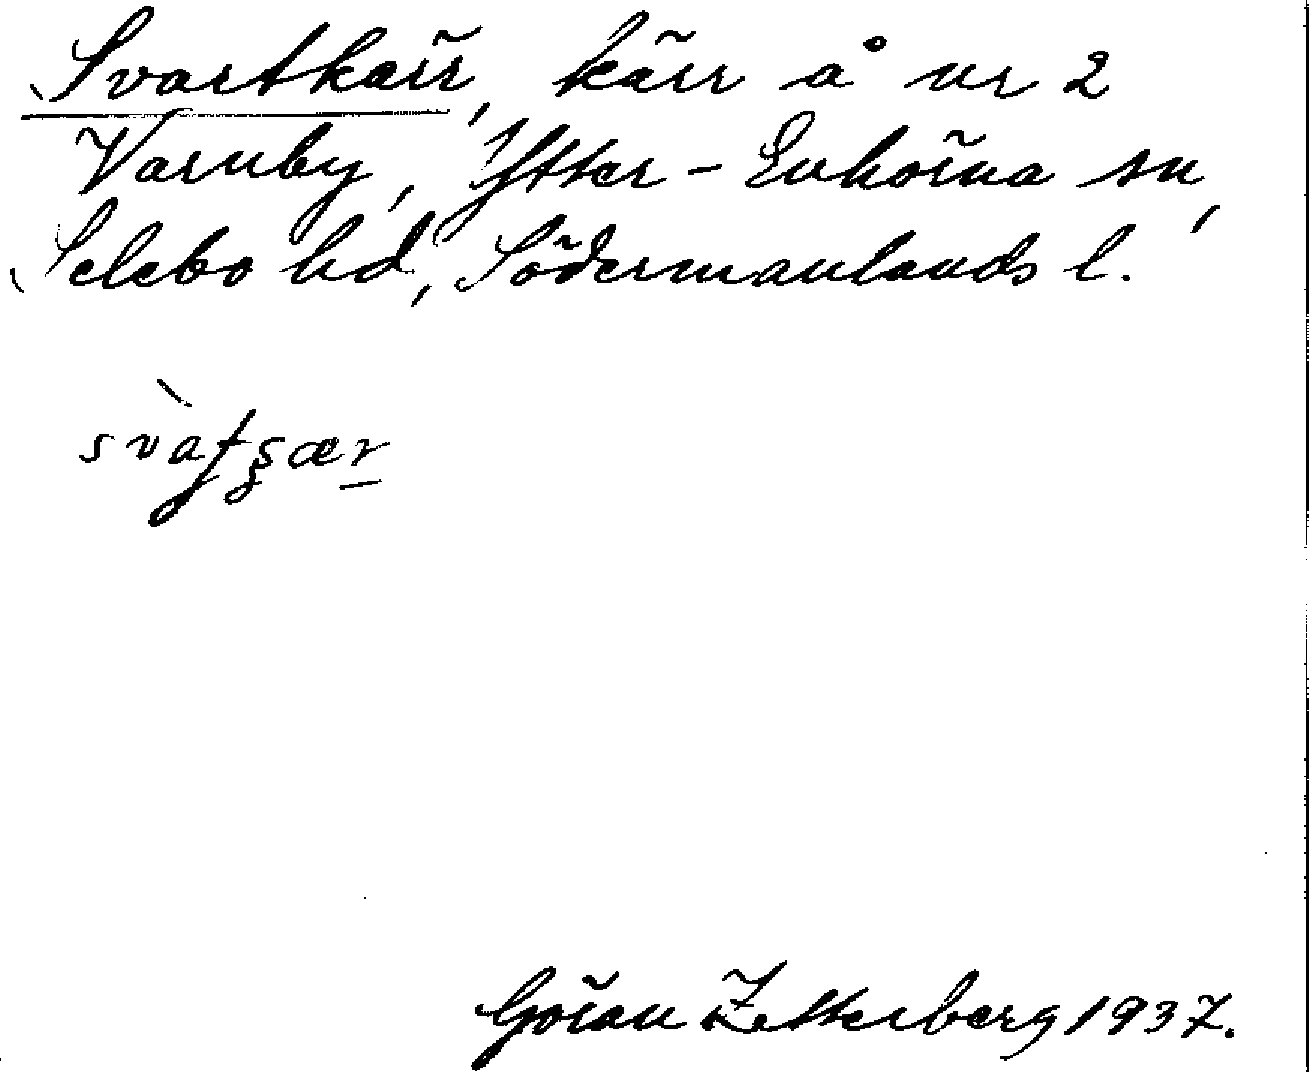 Svartkärr, kärr å nr 2
Varnby, Ytter-Enhörna sn,
Selebo hd, Södermanlands l.
Göran Zetterberg 1937.